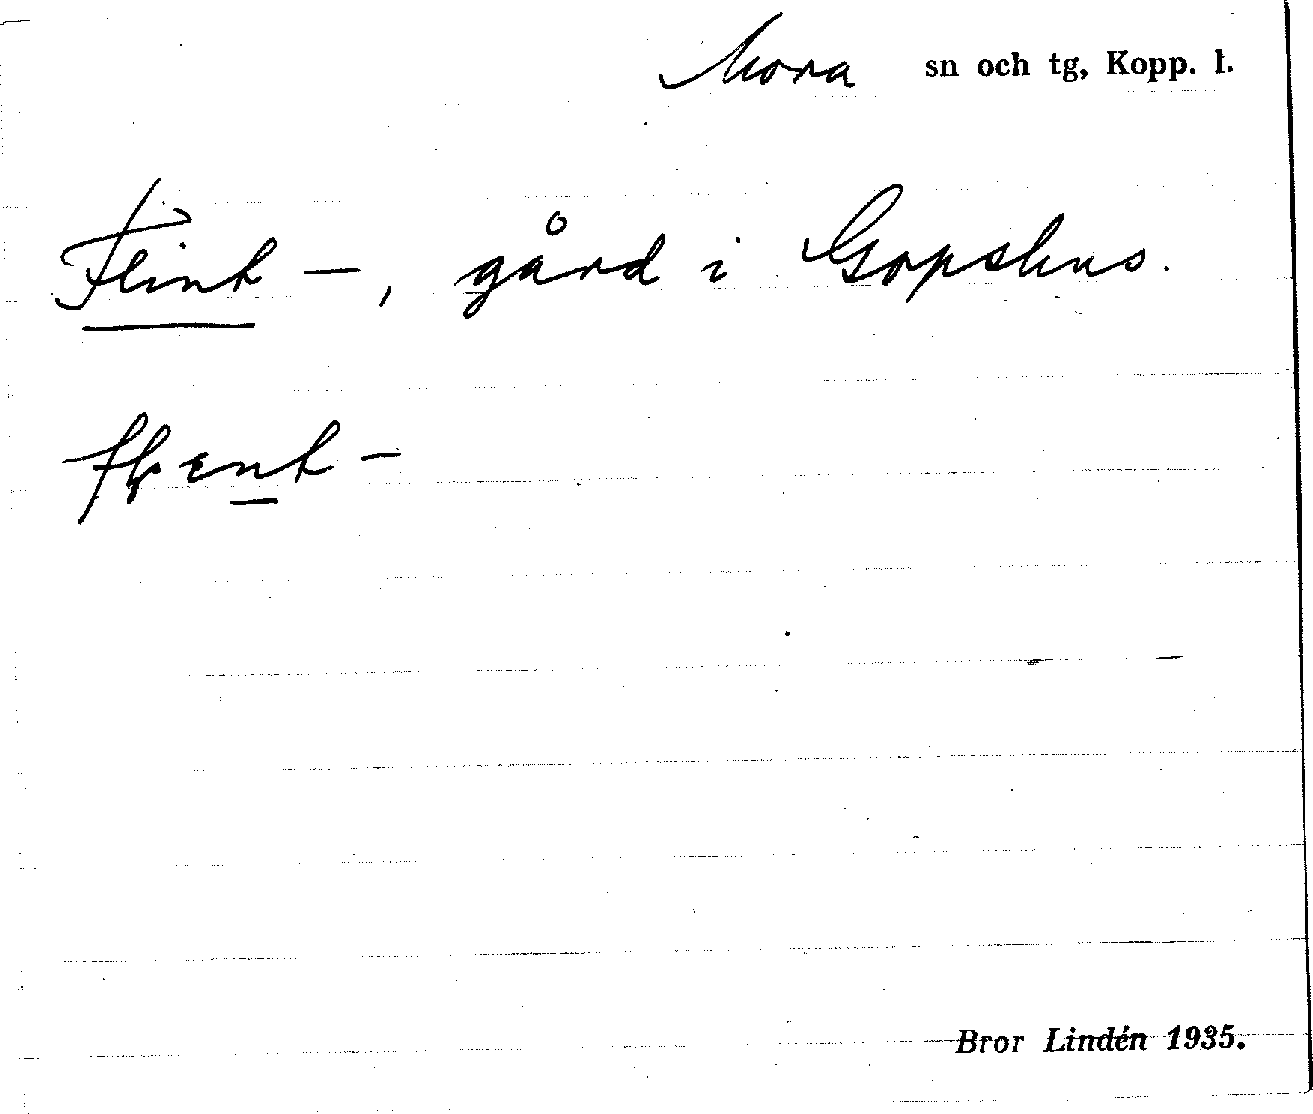 Mora sn och tg, Kopp. l.
Flint –, gård i Gopshus.
flent –
Bror Lindén 1935.